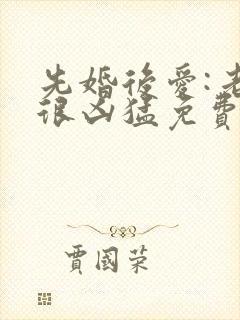 先婚後愛:老
很凶猛免費
賈國荣